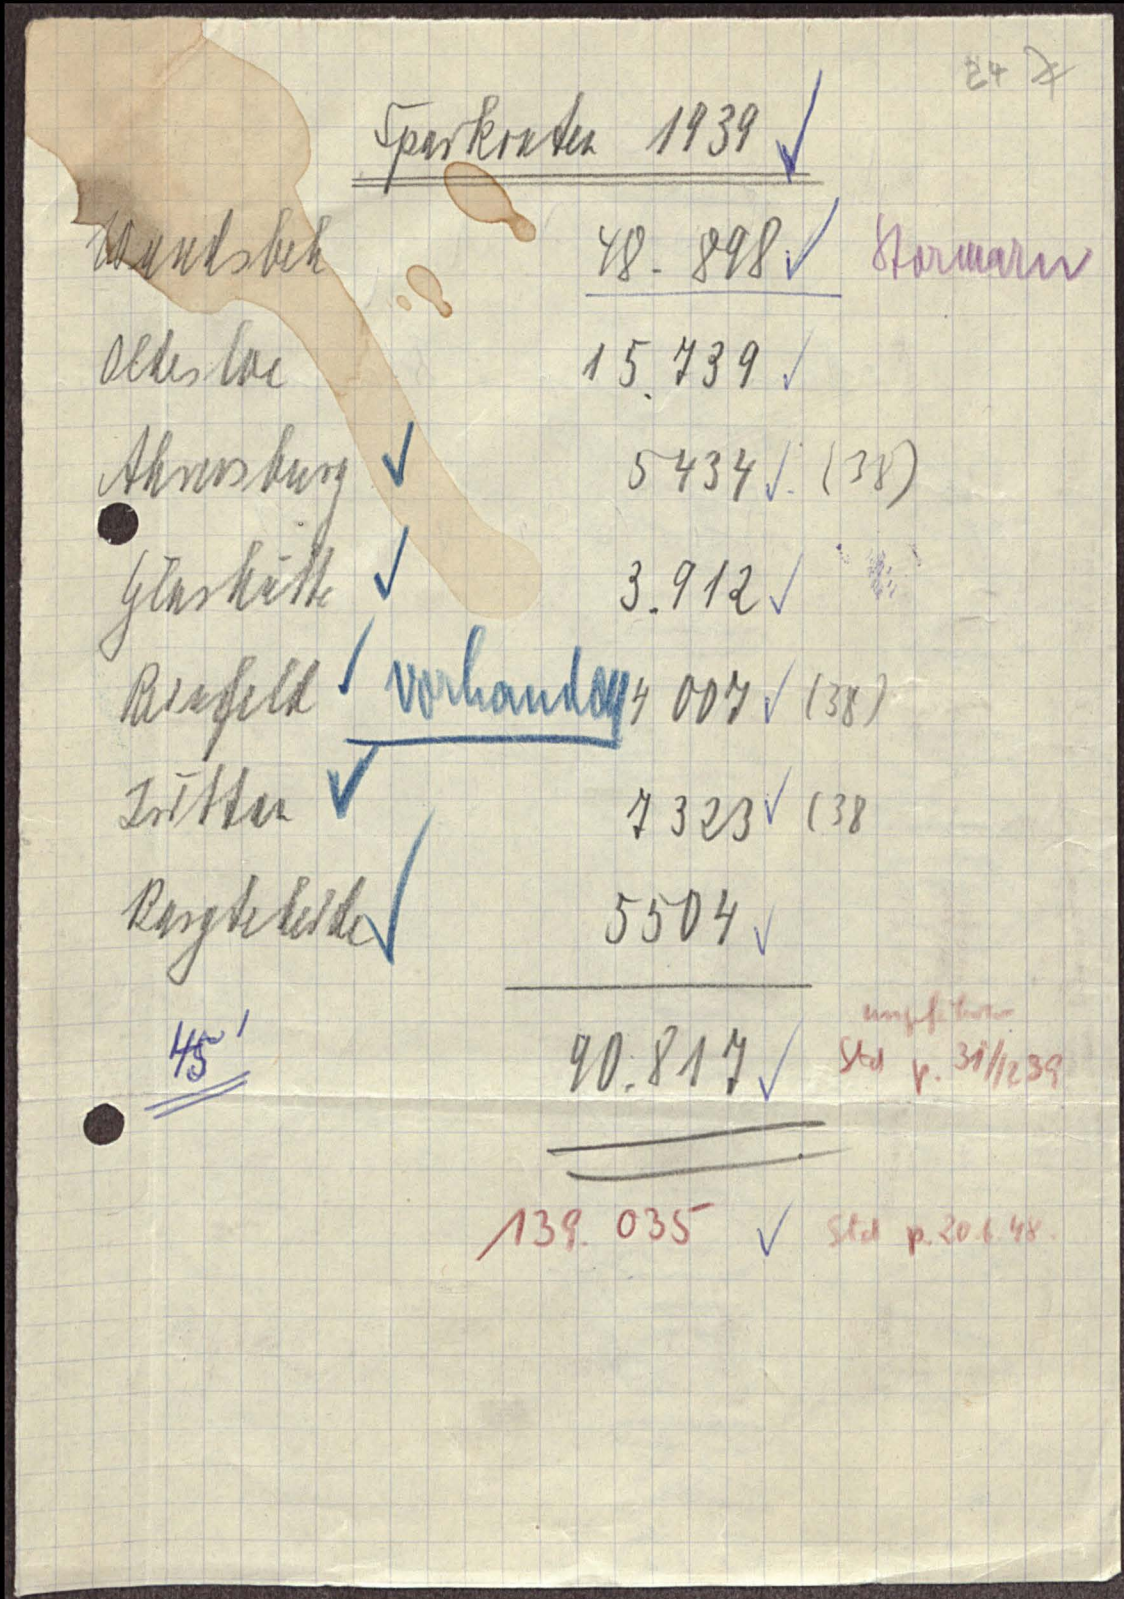 24
Sparkonten 1939 ✓
Wandsbek 48.898 ✓ Stormarn
Oldesloe 15.739 ✓
Ahrensburg ✓ 5434 ✓ (38)
Glashütte ✓ 3.912 ✓
Reinfeld ✓ vorhanden 4 007 ✓ (38)
Trittau ✓ 7323 ✓ (38
Bargteheide ✓ 5504 ✓
ungefährer
45 90.817 ✓ Std p. 31/12 39
139.035 ✓ Std p. 20.6.48.